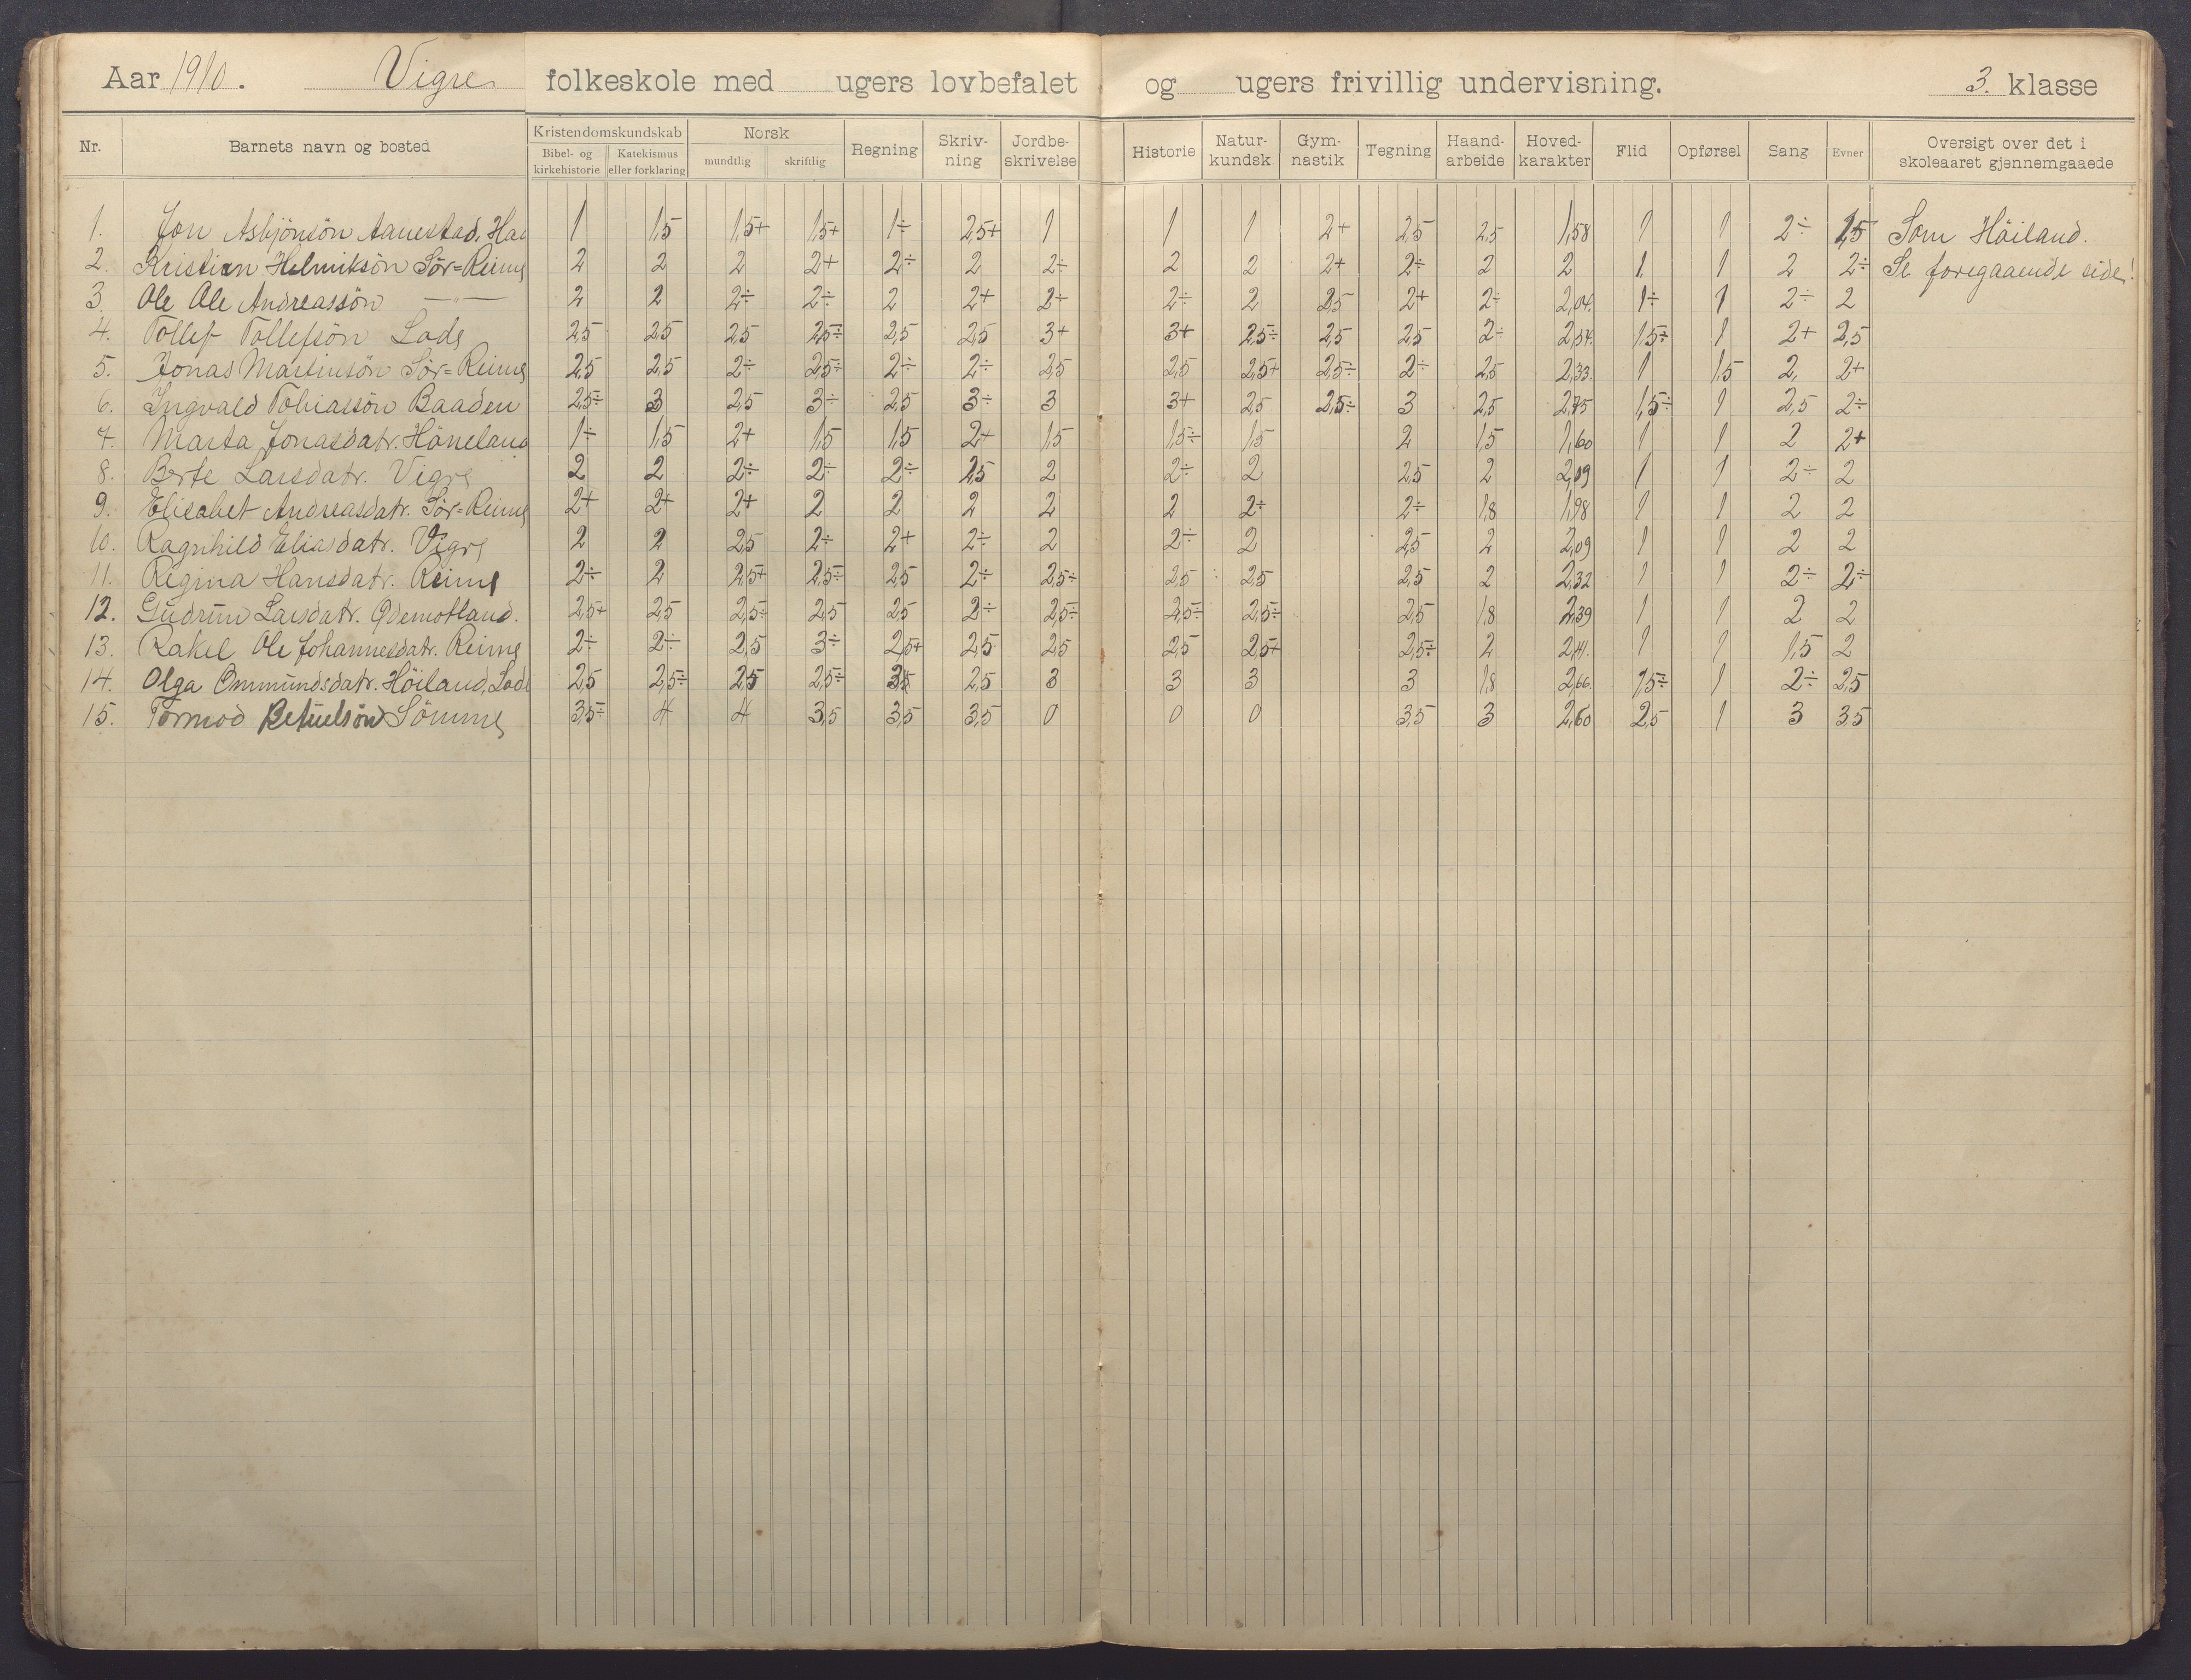 Aar 1910. Vigre folkeskole med ugers lovbefalet og ugers frivillig undervisning. 3. klasse
Nr. Barnets navn og bosted Kristendomskundskab Bibel- og kirkehistorie Katekismus eller forklaring Norsk mundtlig skriftlig Regning Skriv-ning Jordbe-skrivelse Historie Natur-kundsk. Gym-nastik Tegning Haand-arbeide Hoved-karakter Flid Opførsel Sang Evner Oversigt over det i skoleaaret gjennemgaaede
1. Jon Asbjönsön Aanestad, 1 1,5 1,5+ 1,5+ 1÷ 2,5+ 1 1 1 2+ 2,5 2,5 1,58 1 1 2÷ 1,5 Som Höiland.
2. Kristian Helmiksön Sör=Reime 2 2 2 2+ 2÷ 2 2÷ 2 2 2+ 2÷ 2 2 1 1 2 2÷ Se foregaaende side!
3. Ole Ole Andreassön —"— 2 2 2÷ 2÷ 2 2+ 2÷ 2÷ 2 2,5 2+ 2÷ 2,04. 1÷ 1 2÷ 2
4. Tollef Tollefsön Lode 2,5 2,5 2,5 2,5÷ 2,5 2,5 3+ 3+ 2,5÷ 2,5 2,5 2÷ 2,54. 1,5÷ 1 2+ 2,5
5. Jonas Martinsön Sör=Reime 2,5 2,5 2÷ 2,5÷ 2÷ 2÷ 2,5 2,5 2,5+ 2,5÷ 2÷ 2,5 2,33. 1 1,5 2, 2+
6. Ingvald Tobiassön Baaden 2,5÷ 3 2,5 3÷ 2,5 3÷ 3 3+ 2,5 2,5÷ 3 2,5 2,75 1,5÷ 1 2,5 2÷
7. Marta Jonasdatr. Häneland 1÷ 1,5 2+ 1,5 1,5 2+ 1,5 1,5÷ 1,5 2 1,5 1,60 1 1 2 2+
8. Berte Larsdatr. Vigre 2 2 2÷ 2÷ 2÷ 2,5 2 2÷ 2 2,5 2 2,09 1 1 2÷ 2
9. Elisabet Andreasdatr. Sör=Reime 2+ 2+ 2+ 2 2 2 2 2 2+ 2÷ 1,8 1,98 1 1 2 2
10. Ragnhild Eliasdatr. Vigre 2 2 2,5 2÷ 2+ 2÷ 2 2÷ 2 2,5 2 2,09 1 1 2 2
11. Regina Hansdatr. Reime 2÷ 2 2,5+ 2,5÷ 2,5 2÷ 2,5÷ 2,5 2,5 2,5 2 2,32 1 1 2÷ 2÷
12. Gudrun Larsdatr. Ödemotland. 2,5+ 2,5 2,5÷ 2,5 2,5 2÷ 2,5÷ 2,5÷ 2,5÷ 2,5 1,8 2,39 1 1 2 2
13. Rakel Ole Johannesdatr. Reime 2÷ 2÷ 2,5 3÷ 2,5+ 2,5 2,5 2,5 2,5+ 2,5÷ 2 2,41. 1 1 1,5 2
14. Olga Ommundsdatr. Höiland, Lode 2,5 2,5÷ 2,5 2,5÷ 2,5 3 3 3 3 1,8 2,66. 1,5÷ 1 2÷ 2,5
15. Tormod Betuelsön Sömme 3,5÷ 4 4 3,5 3,5 3,5 0 0 0 3,5 3 2,60 2,5 1 3 3,5